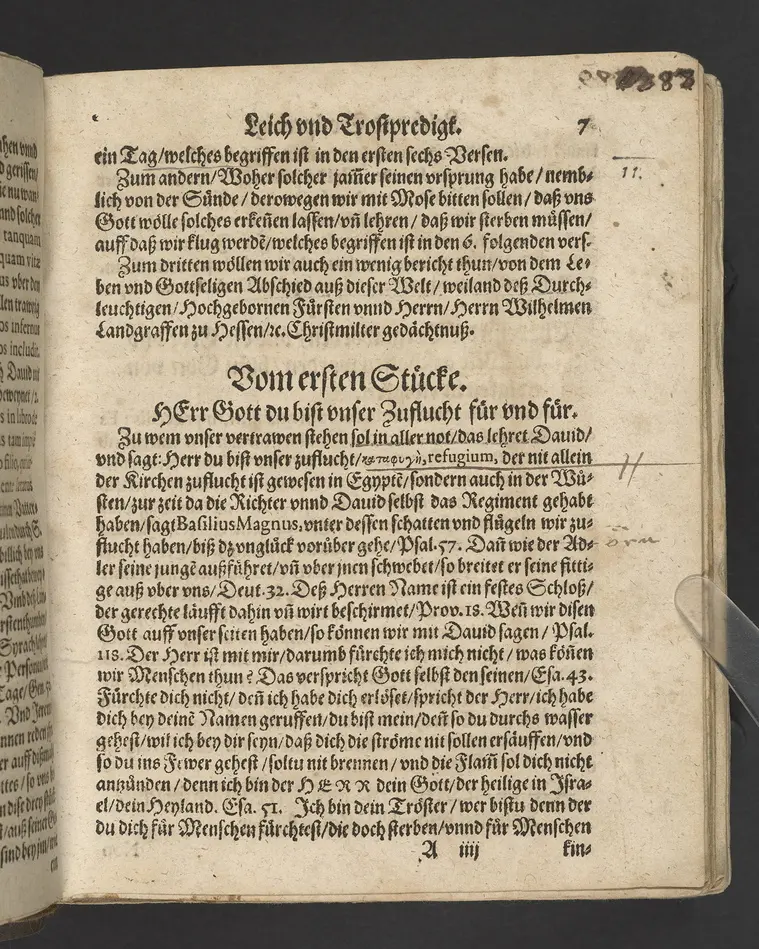 Leich vnd Trostpredigt. 7
ein Tag/welches begriffen ist in den ersten sechs Versen.
Zum andern/Woher solcher jam̃er seinen vrsprung habe/nemb-
lich von der Sünde/derowegen wir mit Mose bitten sollen/daß vns
Gott wölle solches erkeñen lassen/vñ lehren/daß wir sterben müssen/
auff daß wir klug werdẽ/welches begriffen ist in den 6. folgenden vers.
Zum dritten wöllen wir auch ein wenig bericht thun/von dem Le-
ben vnd Gottseligen Abschied auß dieser Welt/weiland deß Durch-
leuchtigen/Hochgebornen Fürsten vnnd Herrn/Herrn Wilhelmen
Landgraffen zu Hessen/ꝛc. Christmilter gedächtnuß.
11.
Vom ersten Stücke.
HErr Gott du bist vnser Zuflucht für vnd für.
Zu wem vnser vertrawen stehen sol in aller not/das lehret Dauid/
vnd sagt: Herr du bist vnser zuflucht/καταφυγὴ, refugium, der nit allein
der Kirchen zuflucht ist gewesen in Egyptẽ/sondern auch in der Wü-
sten/zur zeit da die Richter vnnd Dauid selbst das Regiment gehabt
haben/sagt Basilius Magnus, vnter dessen schatten vnd flügeln wir zu-
flucht haben/biß dz vnglück vorüber gehe/Psal. 57. Dañ wie der Ad-
ler seine jungẽ außführet/vñ vber jnen schwebet/so breitet er seine fitti-
ge auß vber vns/Deut. 32. Deß Herren Name ist ein festes Schloß/
der gerechte läufft dahin vñ wirt beschirmet/Prov. 18. Weñ wir disen
Gott auff vnser seiten haben/so können wir mit Dauid sagen/Psal.
118. Der Herr ist mit mir/darumb fürchte ich mich nicht/was köñen
wir Menschen thun? Das verspricht Gott selbst den seinen/Esa. 43.
Fürchte dich nicht/deñ ich habe dich erlöset/spricht der Herr/ich habe
dich bey deinẽ Namen geruffen/du bist mein/deñ so du durchs wasser
gehest/wil ich bey dir seyn/daß dich die ströme nit sollen ersäuffen/vnd
so du ins Fewer gehest/soltu nit brennen/vnd die Flam̃ sol dich nicht
anzünden/denn ich bin der HERR dein Gott/der heilige in Isra-
el/dein Heyland. Esa. 51. Ich bin dein Tröster/wer bistu denn der
du dich für Menschen fürchtest/die doch sterben/vnnd für Menschen
A iiij kin-